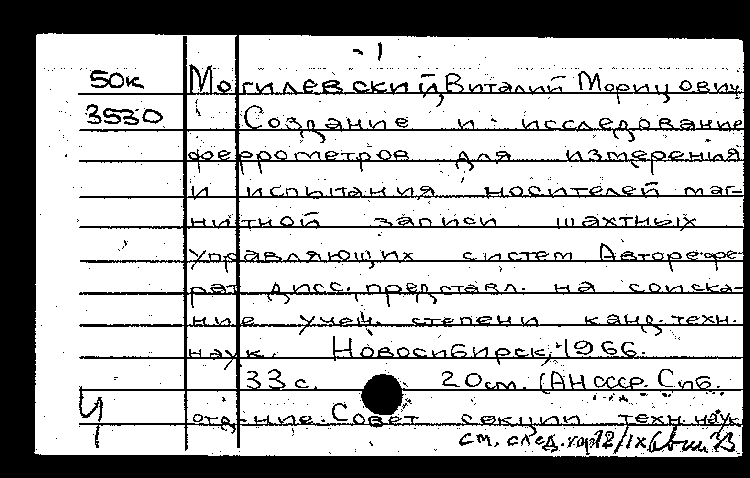 - 1
50к Могилевский, ВиталийМорицович
3530 Создание и исследование
феррометров для измерения
и испытания носителей маг-
нитной записи шахтных
управляющих систем Авторефе-
рат дисс., представл. на соиска-
ние учен. степени канд. техн.
наук. Новосибирск, 1966.
33 с. 20см. (АН СССР. Сиб.
отд-ние. Совет секции техн. наук
см. след. кар 12/IX